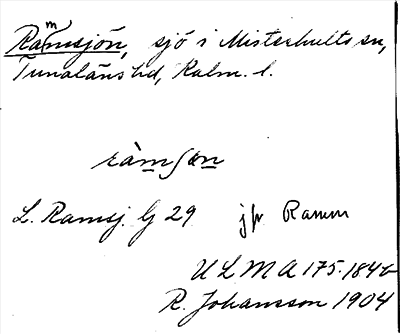 Rammsjön, sjö i Misterhults sn,
Tunaläns hd, Kalm. l.
ràmʃøn
L. Ramsj. lj 29 jfr Ramm
ULMA 175.184 b
R. Johansson 1904